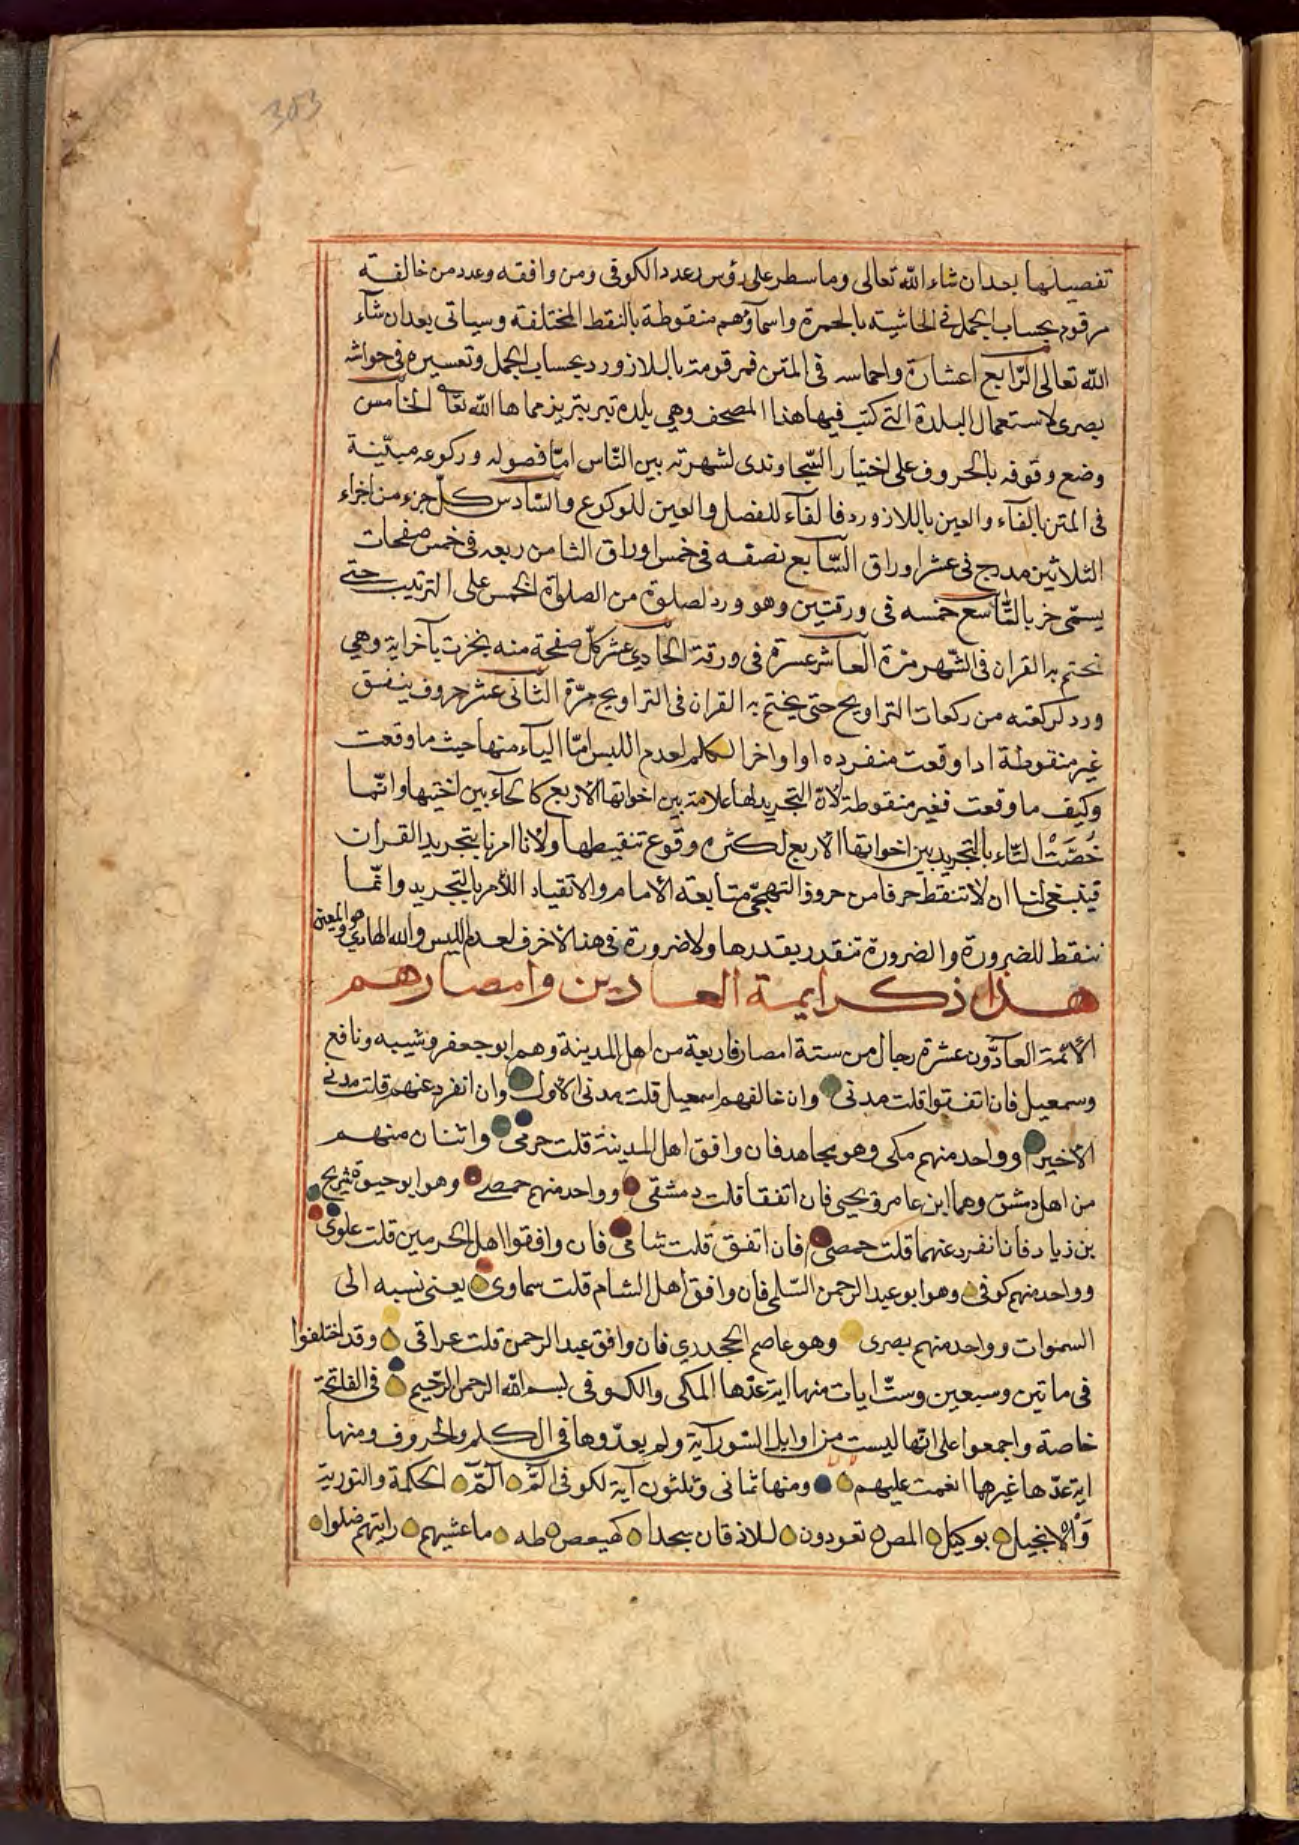 303
تفصيلها بعد ان شاء الله تعالى وما سطر على رؤس بعدد الكوفى ومن وافقه وعدد من خالفة
مرقوم بحساب الجمل فى الحاشيته بالحمرة واسماؤهم منقوطة بالنقط المختلفة وسياتى بعد ان شاء
الله تعالى الرابع اعشارة واخماسه فى المتن فمرقومة باللازورد بحساب الجمل وتعسيره فى حواشه
بصرى لاستعمال البلدة التى كتب فيها هذا المصحف وهى بلده تبريز حماها الله تعا الخامس
وضع وقوفه بالحروف على اختيار السجاوندى لشهرته بين الناس امّا فصوله وركوعه مبيّنة
فى المتن بالفآء والعين باللازورد فالفآء للفصل والعين للركوع والسّادس كلّ جزء من اجزاء
الثلاثين مدرج فى عشر اوراق السّابع نصفه فى خمس اوراق الثامن ربعه فى خمس صفحات
يسمّى حزبا التّاسع خمسه فى ورقتين وهو ورد لصلوة من الصلوة الخمس على الترتيب حتى
نختم به القران فى الشّهر مرّة العاشر عشرة فى ورقة الحادى عشر كلّ صفحة منه نجزت بآخر اية وهى
ورد لركعته من ركعات التراويح حتى يختم به القران فى التراويح مرّة الثانى عشر حروف ينفق
غير منقوطة اذا وقعت منفرده او اواخر الكلم لعدم اللبس امّا الياء منها حيث ما وقعت
وكيف ما وقعت فغير منقوطة لانّ التجريد لها علامة بين اخواتها الاربع كالحآء بين اختيها وانّما
خُصّتْ التّاء بالتجريد بين اخواتها الاربع لكثره وقوع تنقيطها ولانا امرنا بتجريد القران
فينبغى لنا ان لا تنقط حرفا من حروف التهجّى متابعة الامام والانقياد اللأمر بالتجريد وانّما
ننقط للضرورة والضرورة تتقدر بقدرها ولا ضرورة فى هذه الاخرف لعدم اللبس والله الهادى
هو المعين
هذا ذكر ايمة العادين وامصارهم
الائمة العادّون عشرة رجال من ستة امصار فاربعة من اهل المدينة وهم ابو جعفر وشيبه ونافع
وسمعيل فان اتفقوا قلت مدنى وان خالفهم اسمعيل قلت مدنى الاول وان انفرد عنهم قلت مدنى
الاخير وواحد منهم مكى وهو مجاهد فان وافق اهل المدينة قلت حرمى واثنان منهم
من اهل دمشق وهما ابن عامر ويحيى فان اتفقا قلت دمشقى وواحد منهم حمصى وهو ابو حيوة شريح
بن زياد فان انفرد عنهما قلت حمصى فان اتفق قلت شامى فان وافقوا اهل الحرمين قلت علوى
وواحد منهم كوفى وهو ابو عبد الرحمن السّلمى فان وافق اهل الشام قلت سماوى يعنى نسبه الى
السموات وواحد منهم بصرى وهو عاصم الجحدرى فان وافق عبد الرحمن قلت عراقى وقد اختلفوا
فى ماتين وسبعين وستّ ايات منها اية عدّها المكى والكوفى بسم الله الرحمن الرّحيم فى الفاتحة
خاصة واجمعوا على انها ليست من اوايل السّور آية ولم يعدّوها فى الكلم والحروف ومنها
اية عدّها غيرهما انعمت عليهم ومنها ثمانى وثلثون آية لكوفى الم الم الحكمة والتورية
والانجيل بوكيل المص تعودون للاذقان سجدا كهيعص طه ما غشيهم رايتهم ضلوا